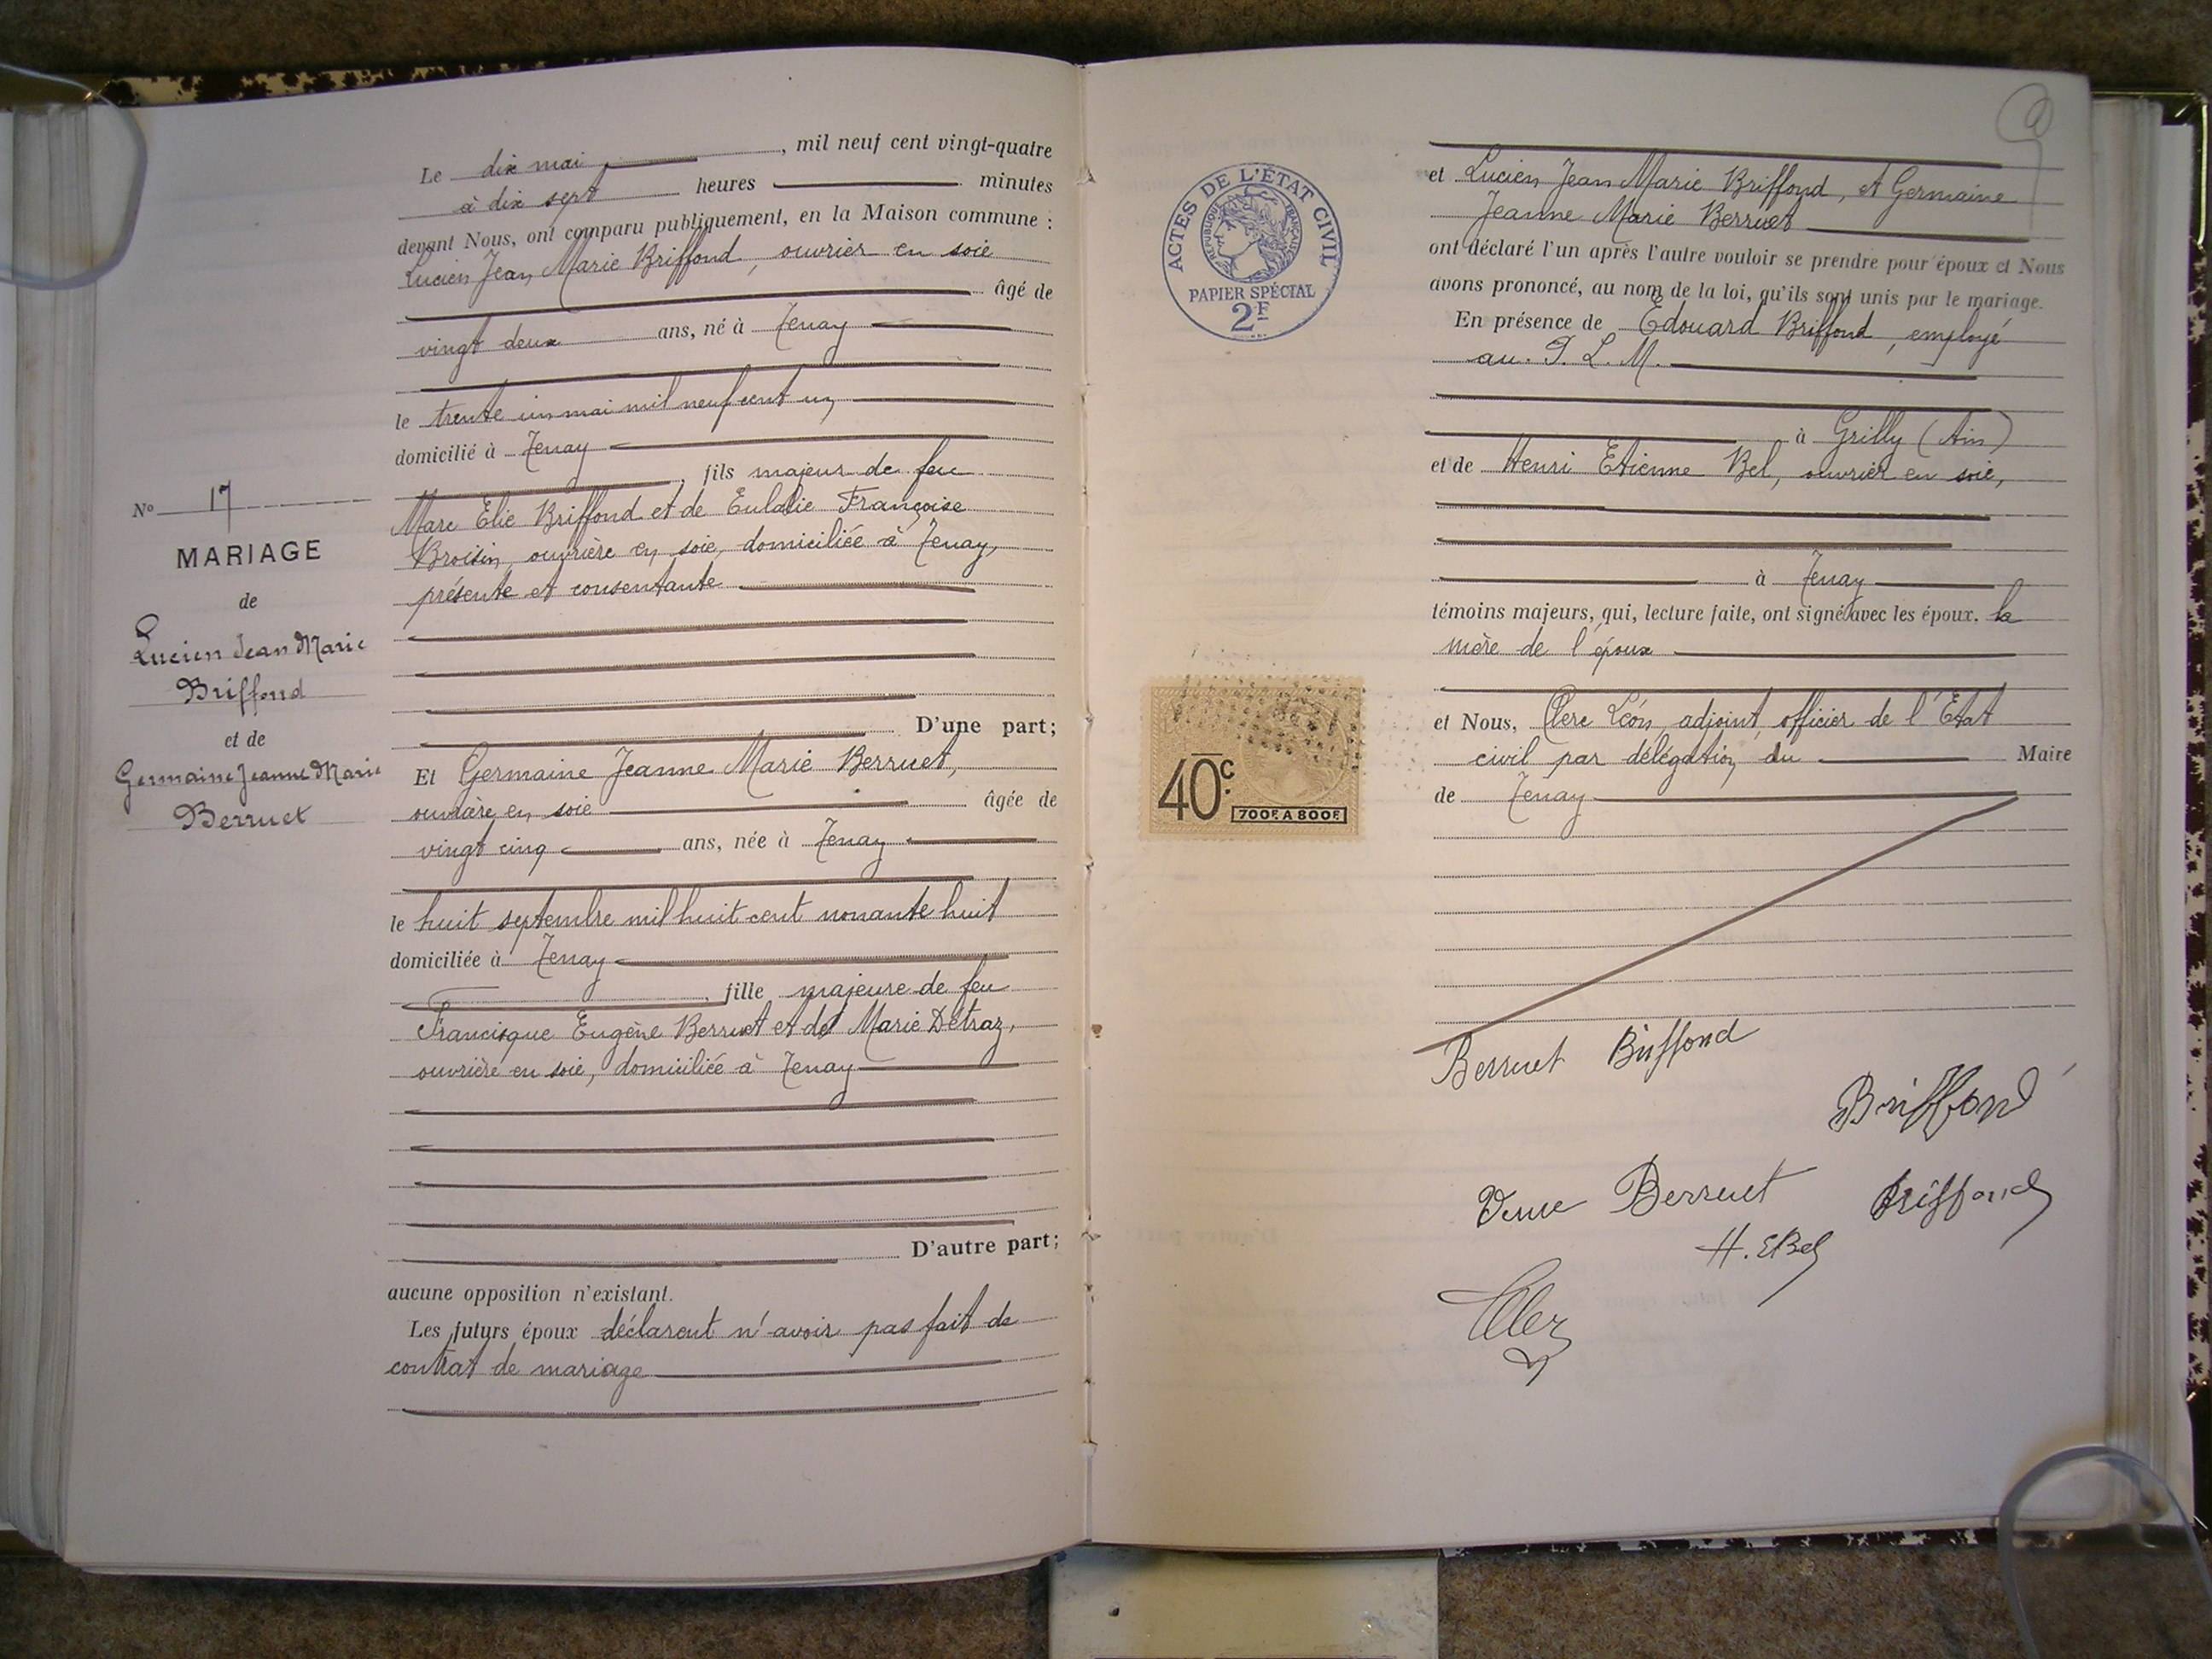 Nº 17
MARIAGE
de
Lucien Jean Marie
Briffond
et de
Germaine Jeanne Marie
Berruet
Le dix mai, mil neuf cent vingt-quatre
à dix sept heures minutes
devant Nous, ont comparu publiquement, en la Maison commune :
Lucien Jean Marie Briffond, ouvrier en soie
âgé de
vingt deux ans, né à Tenay
le trente un mai mil neuf cent un
domicilié à Tenay
, fils majeur de feu
Marc Elie Briffond et de Eulalie Françoise
Broisin, ouvrière en soie, domiciliée à Tenay,
présente et consentante
D'une part;
Et Germaine Jeanne Marie Berruet,
ouvrière en soie âgée de
vingt cinq ans, née à Tenay
le huit septembre mil huit cent nonante huit
domiciliée à Tenay
, fille majeure de feu
Francisque Eugène Berruet et de Marie Détraz,
ouvrière en soie, domiciliée à Tenay
D'autre part;
aucune opposition n'existant.
Les futurs époux déclarent n'avoir pas fait de
contrat de mariage
ACTES DE L'ÉTAT CIVIL
RÉPUBLIQUE FRANÇAISE
PAPIER SPÉCIAL
2F
40c
700F. A 800F.
et Lucien Jean Marie Briffond, et Germaine
Jeanne Marie Berruet
ont déclaré l'un après l'autre vouloir se prendre pour époux et Nous
avons prononcé, au nom de la loi, qu'ils sont unis par le mariage.
En présence de Edouard Briffond, employé
au P. L. M.
à Grilly (Ain)
et de Henri Etienne Bel, ouvrier en soie,
à Tenay
témoins majeurs, qui, lecture faite, ont signé avec les époux, la
mère de l'époux
et Nous, Clerc Léon, adjoint, officier de l'Etat
civil par délégation du Maire
de Tenay
Berruet Briffond
Briffond
Veuve Berruet Briffond
H. E Bel
Clerc